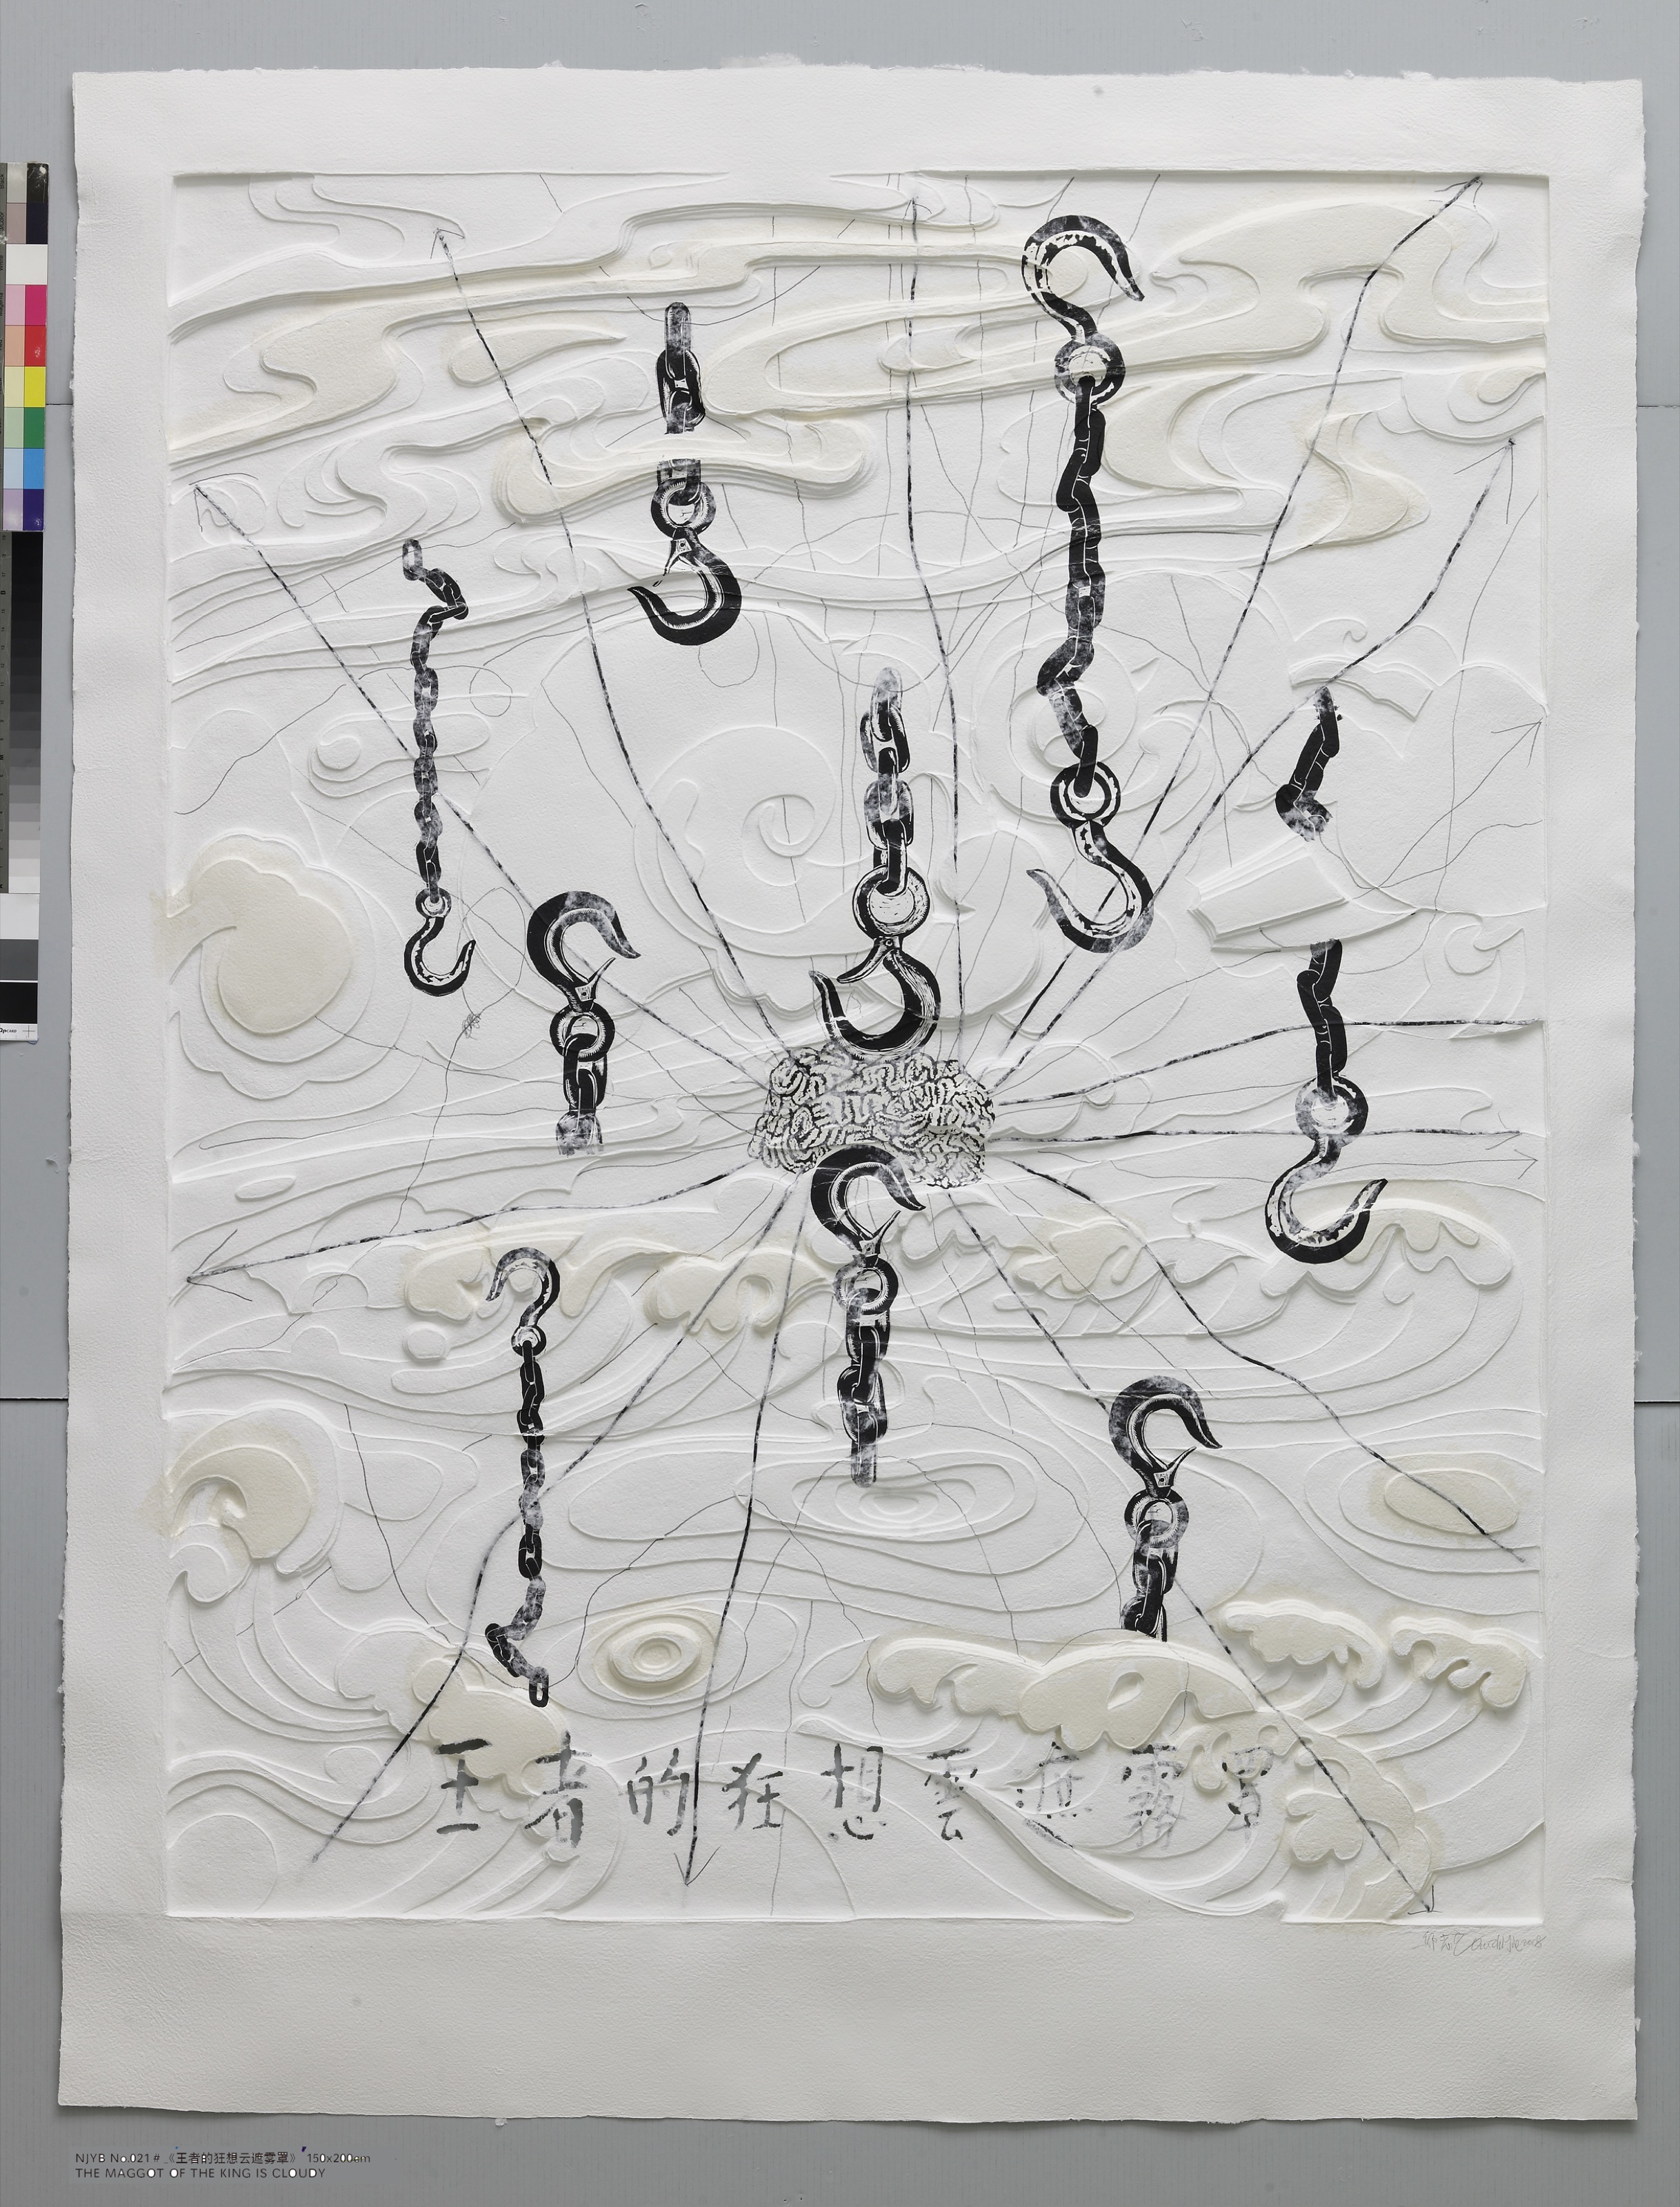 王者的狂想雲遮霧罩
NJYB No.021# 《王者的狂想云遮雾罩》 150x200cm
THE MAGGOT OF THE KING IS CLOUDY